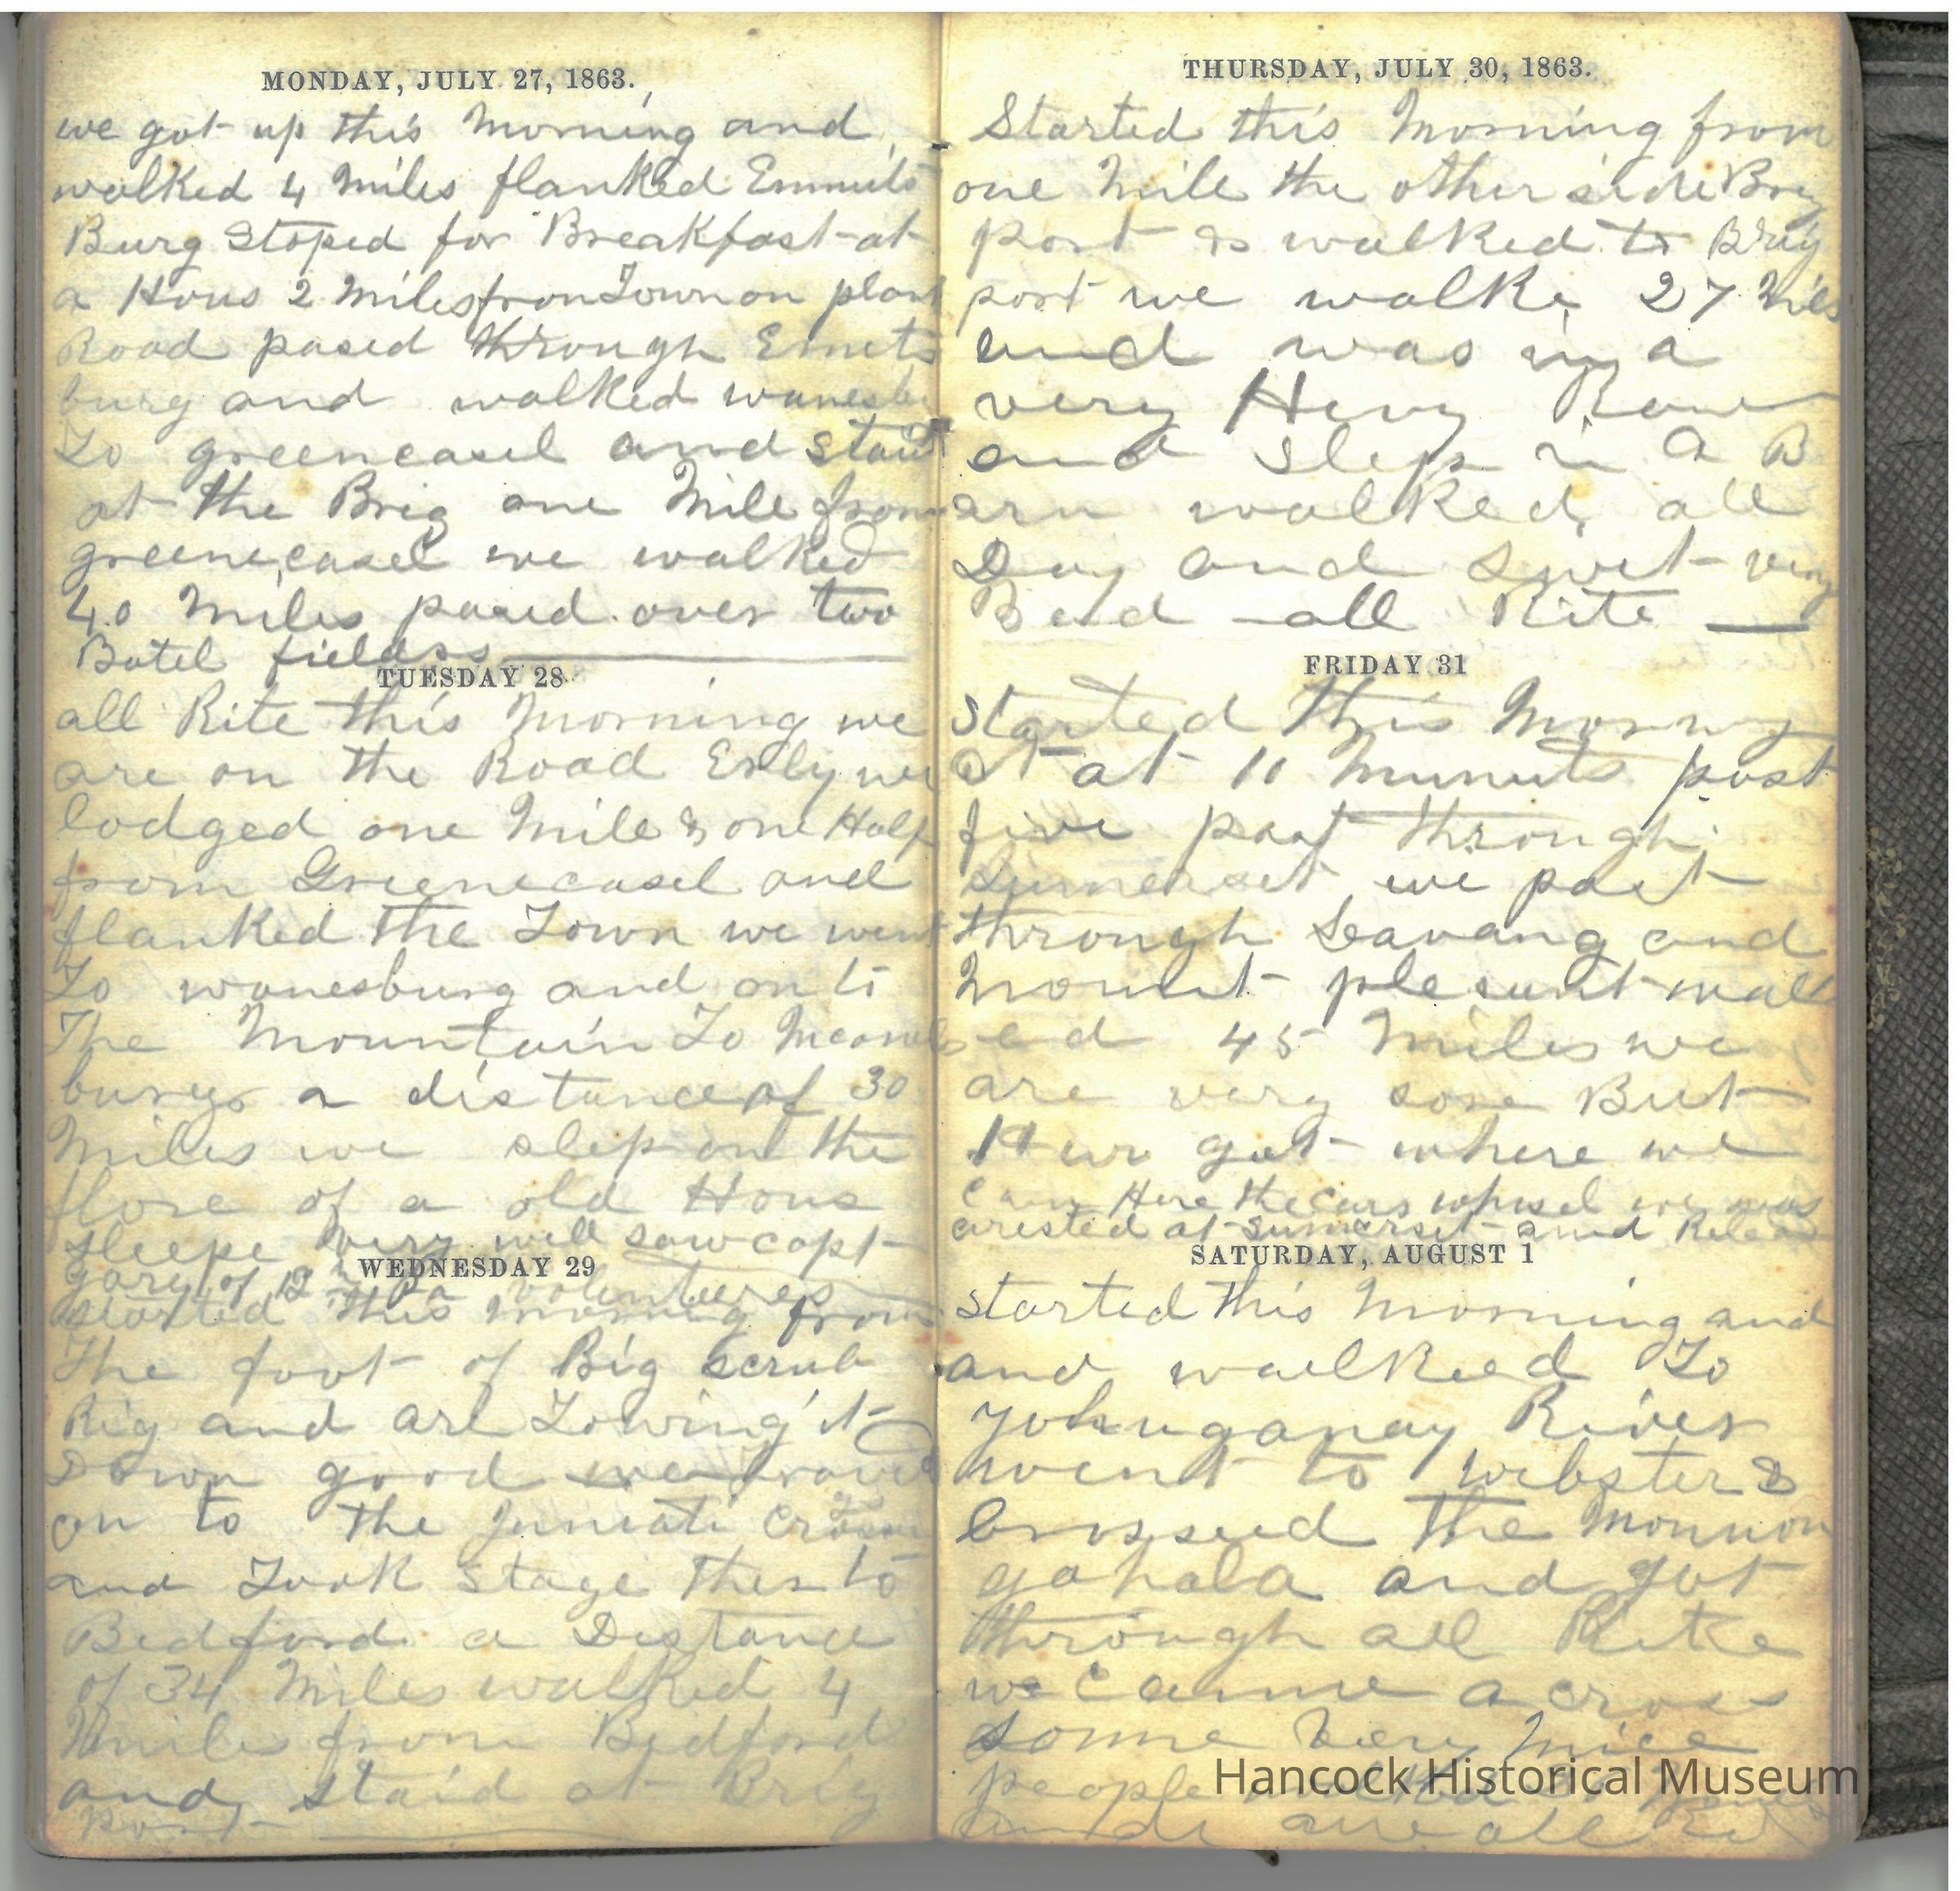 MONDAY, JULY 27, 1863.
we got up this Morning and
walked 4 Miles flanked Emmits
Burg Stoped for Breakfast at
a Hous 2 Miles from Town on plank
Road pased through Emets
burg and walked wanesbu
To greencasel and staid
at the Brig one Mile from
greenecasel we walked
40 Miles pased over two
Batel fields
TUESDAY 28
all Rite this Morning we
are on the Road Erly we
lodged one Mile & one Half
from Greenecasel and
flanked the Town we went
To wanesburg and on to
The Mountain To Mcconels
burg a distance of 30
Miles we slep on the
flore of a old Hous
sleepe very well saw capt
gary of 12 Pa volunteeres
WEDNESDAY 29
started this morning from
The foot of Big scrub
Rig and are Towing it
Down good we
on to the Juniati Crossi
and Took Stage Ther to
Bedford a Distance
of 34 Miles walked 4
Miles from Bedford
and staid at Brig
Port
THURSDAY, JULY 30, 1863.
Started this Morning from
one Mile the other side Brig
port & walked to Brig
port we walke 27 Miles
and was in a
very Hevy Rane
and Slep in a B
arn walked all
Day and Swet very
Bad all Rite
FRIDAY 31
Started This Morning
at at 11 Munuts past
five past through
Sumerset we past
through Seavang and
Mount plesunt walk
ed 45 Miles we
are very sore But
got where we
Can Here the Cars whisel we was
arested at Sumerset and Releas
SATURDAY, AUGUST 1
started this Morning and
and walked To
Yohuganay River
went to Webster &
Crossed the Monnon
gahala and got
through all Rite
we Came across
some very nice
people
and are all Rit
Hancock Historical Museum